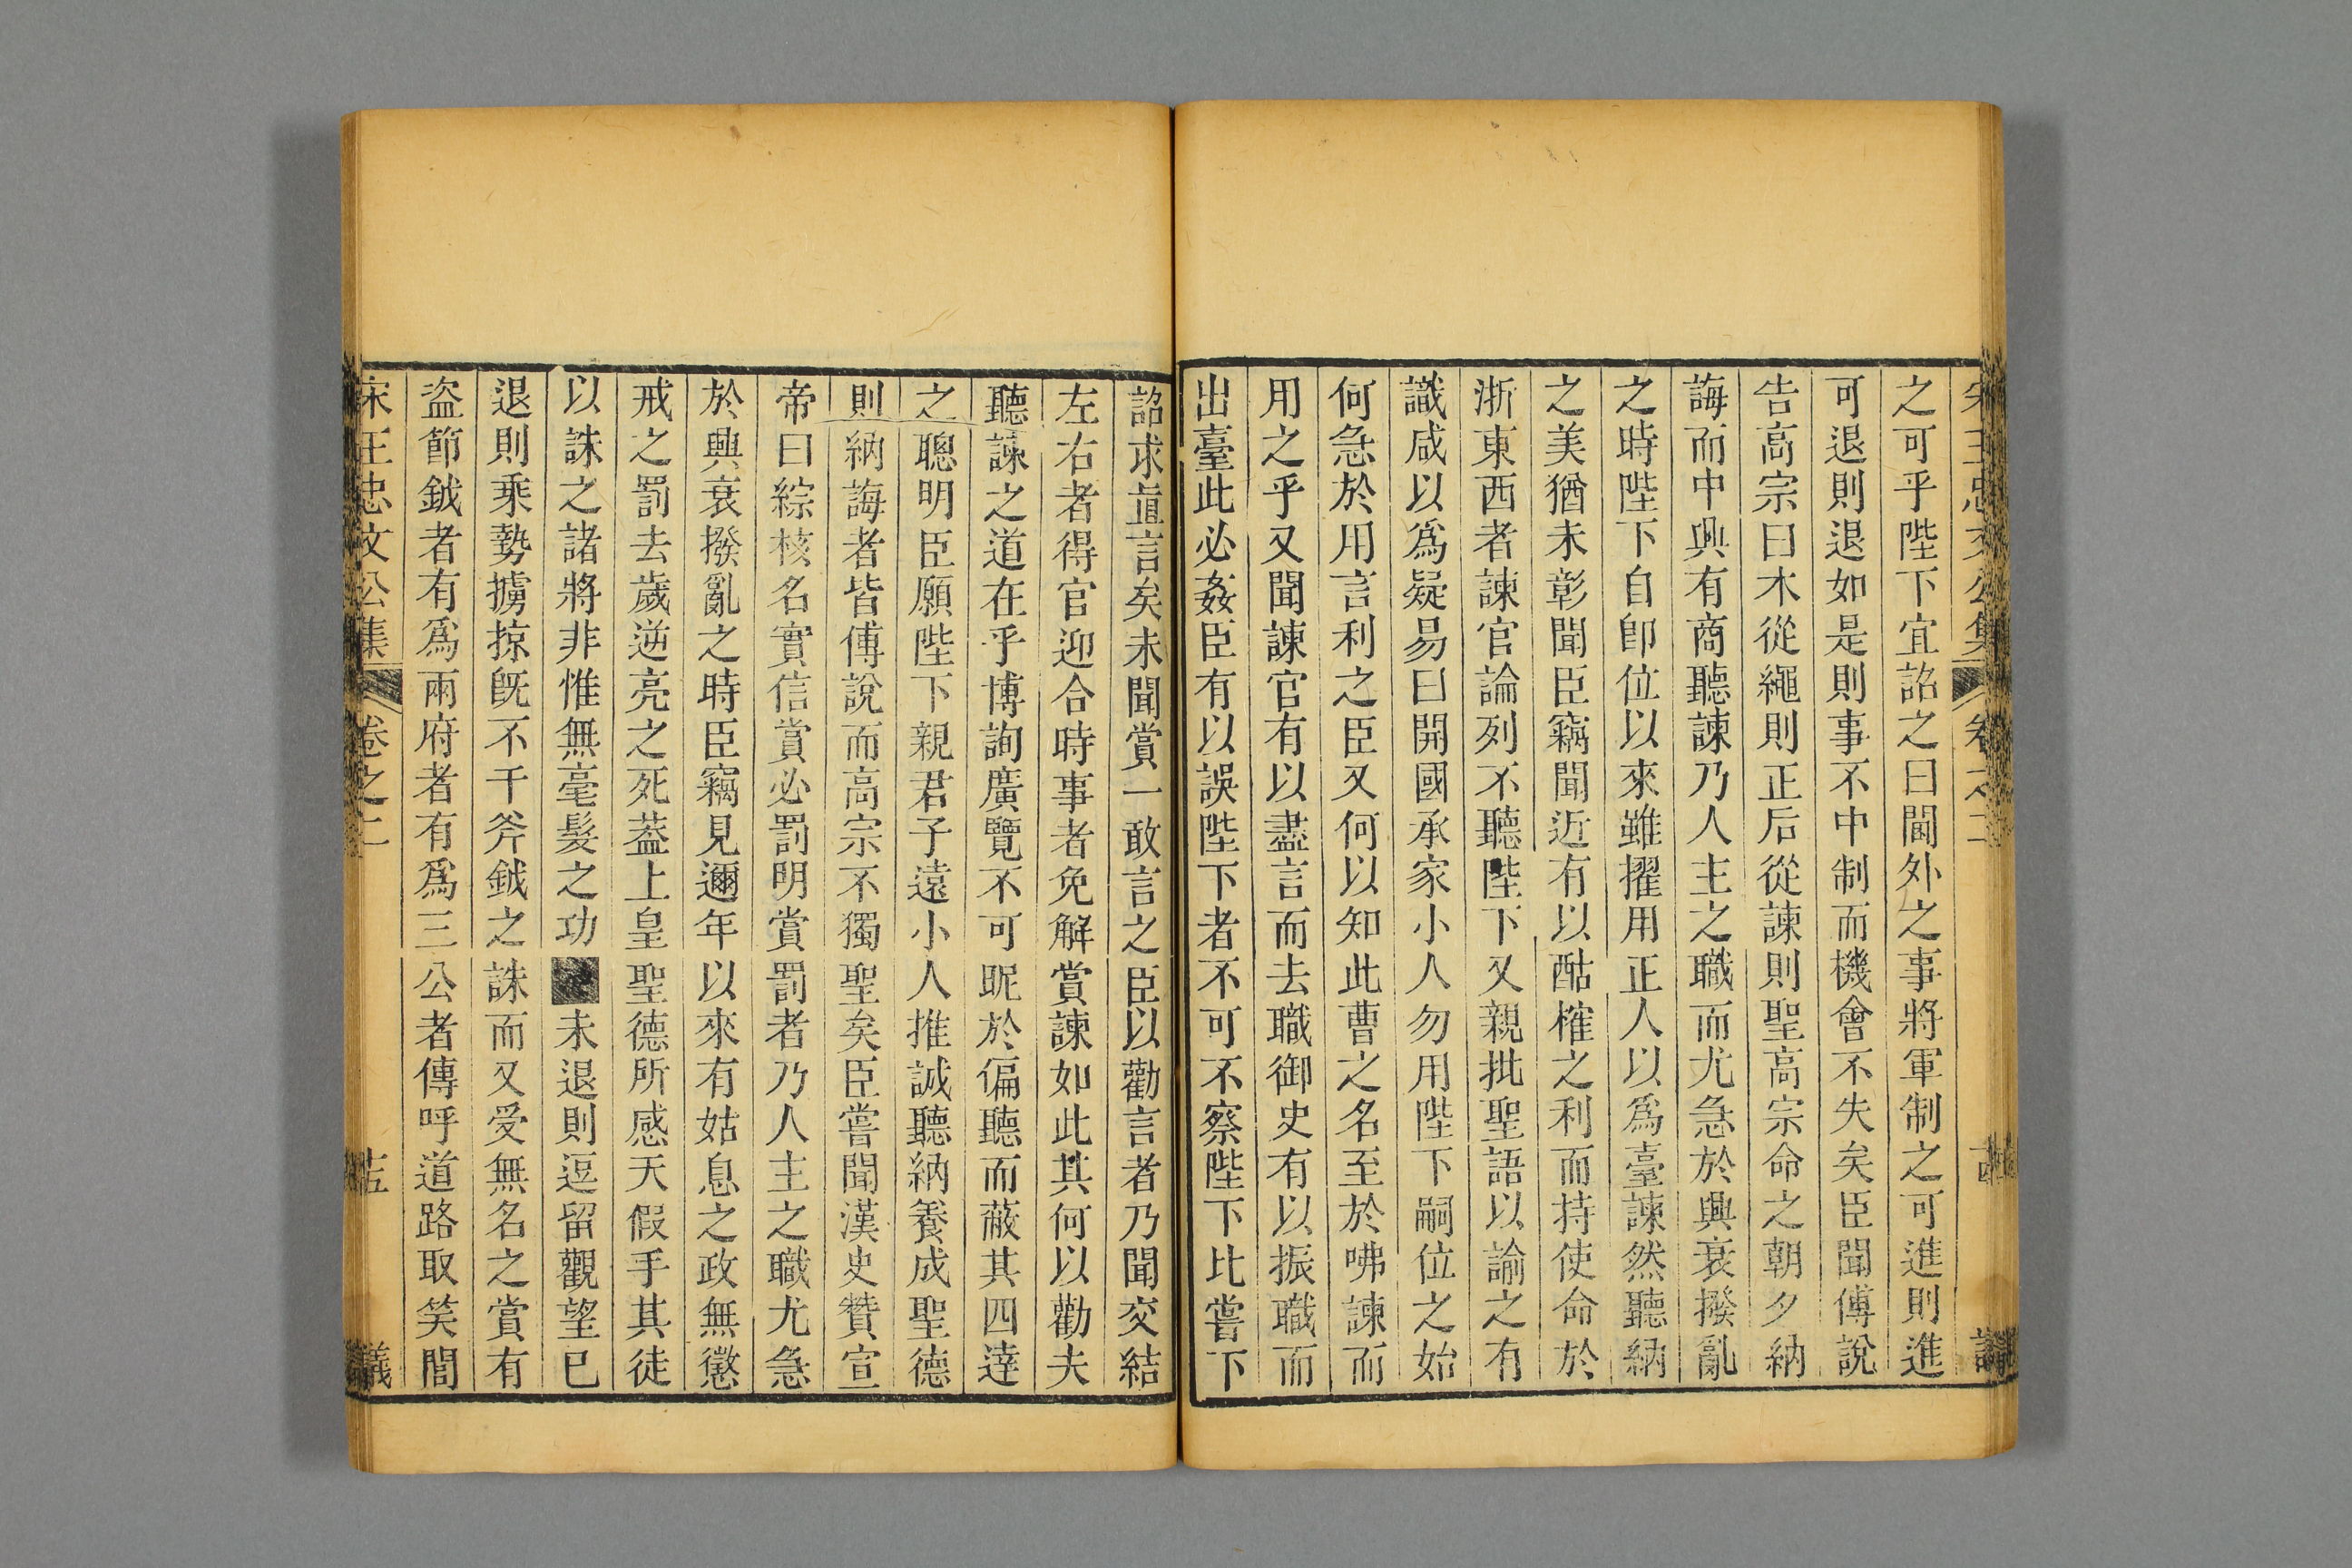 之可乎陛下宜詔之曰閫外之事將軍制之可進則進
可退則退如是則事不中制而機會不失矣臣聞傅說
告高宗曰木從繩則正后從諫則聖高宗命之朝夕納
誨而中興有商聽諫乃人主之職而尤急於興衰撥亂
之時陛下自卽位以來雖擢用正人以爲臺諫然聽納
之美猶未彰聞臣竊聞近有以酤榷之利而持使命於
浙東西者諫官論列不聽陛下又親批聖語以諭之有
識咸以爲疑易曰開國承家小人勿用陛下嗣位之始
何急於用言利之臣又何以知此曹之名至於咈諫而
用之乎又聞諫官有以盡言而去職御史有以振職而
出臺此必姦臣有以誤陛下者不可不察陛下比嘗下
詔求直言矣未聞賞一敢言之臣以勸言者乃聞交結
左右者得官迎合時事者免解賞諫如此其何以勸夫
聽諫之道在乎博詢廣覽不可昵於偏聽而蔽其四達
之聰明臣願陛下親君子遠小人推誠聽納養成聖德
則納誨者皆傅說而高宗不獨聖矣臣嘗聞漢史贊宣
帝曰綜核名實信賞必罰明賞罰者乃人主之職尤急
於興衰撥亂之時臣竊見邇年以來有姑息之政無懲
戒之罰去歲逆亮之死葢上皇聖德所感天假手其徒
以誅之諸將非惟無毫髮之功未退則逗留觀望已
退則乘勢擄掠旣不干斧鉞之誅而又受無名之賞有
盗節鉞者有爲兩府者有爲三公者傳呼道路取笑閭
宋王忠文公集 卷之二 十五 議